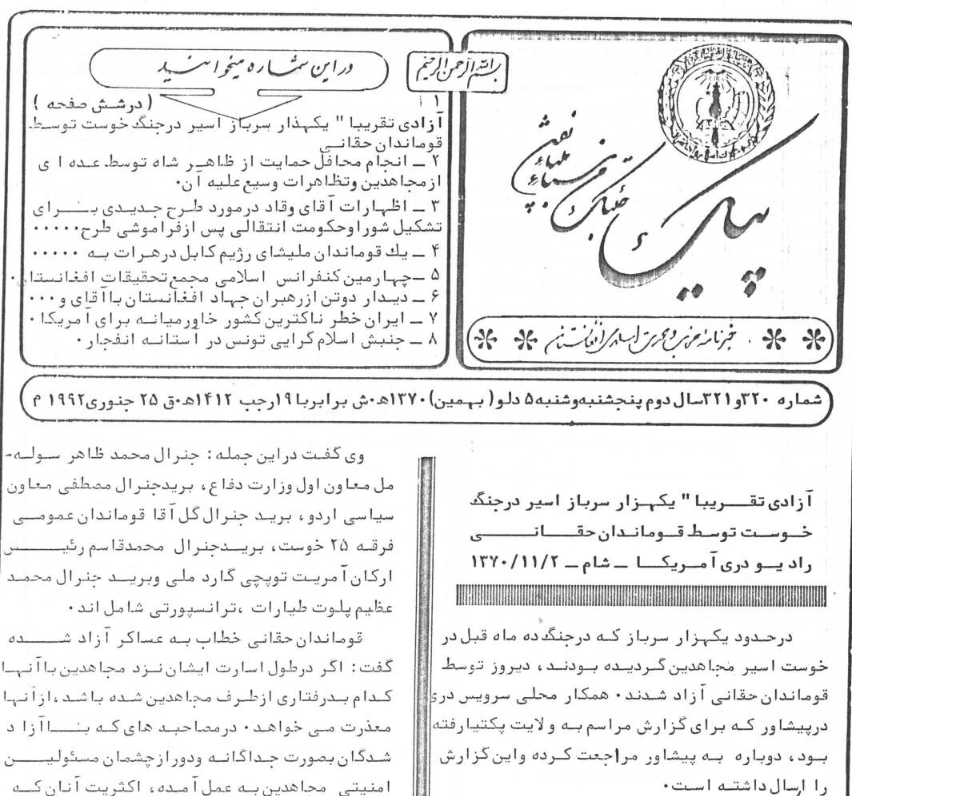 بسم الله الرحمن الرحیم
پیک
خبرنامه حزب وحدت اسلامی افغانستان
دراین شماره میخوانید
(درشش صفحه)
۱
آزادی تقریبا" یکهذار سرباز اسیر درجنگ خوست توسط
قوماندان حقانی
۲ ــ انجام محافل حمایت از ظاهر شاه توسط عده ا ی
ازمجاهدین وتظاهرات وسیع علیه آن۰
۳ ــ اظهارات آقای وقاد درمورد طرح جدیدی برای
تشکیل شوراوحکومت انتقالی پس ازفراموشی طرح۰۰۰۰۰
۴ ــ یك قوماندان ملیشای رژیم کابل درهرات به ۰۰۰۰۰
۵ ــ چهارمین کنفرانس اسلامی مجمع تحقیقات افغانستان۰
۶ ــ دیدار دوتن ازرهبران جهاد افغانستان باآقای و۰۰۰
۷ ــ ایران خطر ناکترین کشور خاورمیانه برای آمریکا۰
۸ ــ جنبش اسلام گرایی تونس در آستانه انفجار۰
شماره ۳۲۰و۳۲۱سال دوم پنجشنبه‌وشنبه۵ دلو(بهمین)۱۳۷۰ه۰ش برابربا۱۹رجب ۱۴۱۲ه۰ق ۲۵ جنوری۱۹۹۲ م
آزادی تقریبا" یکهزار سرباز اسیر درجنگ
خوست توسط قوماندان حقانی
رادیو دری آمریکا ــ شام ــ ۱۳۷۰/۱۱/۲
درحدود یکهزار سرباز که درجنگ ده ماه قبل در
خوست اسیر مجاهدین گردیده بودند، دیروز توسط
قوماندان حقانی آزاد شدند۰ همکار محلی سرویس دری
درپیشاور که برای گزارش مراسم به ولایت پکتیارفته
بود، دوباره به پیشاور مراجعت کرده واین گزارش
را ارسال داشته است۰
وی گفت دراین جمله: جنرال محمد ظاهر سوله‌-
مل معاون اول وزارت دفاع، بریدجنرال مصطفی معاون
سیاسی اردو، برید جنرال گل آقا قوماندان عمومی
فرقه ۲۵ خوست، بریدجنرال محمدقاسم رئیس
ارکان آمریت توپچی گارد ملی وبرید جنرال محمد
عظیم پلوت طیارات ،ترانسپورتی شامل اند۰
قوماندان حقانی خطاب به عساکر آزاد شده
گفت: اگر درطول اسارت ایشان نزد مجاهدین باآنها
کدام بدرفتاری ازطرف مجاهدین شده باشد،ازآنها
معذرت می خواهد۰ درمصاحبه های که باآزا د
شدگان بصورت جداگانه ودورازچشمان مسئولین
امنیتی مجاهدین به عمل آمده، اکثریت آنان که